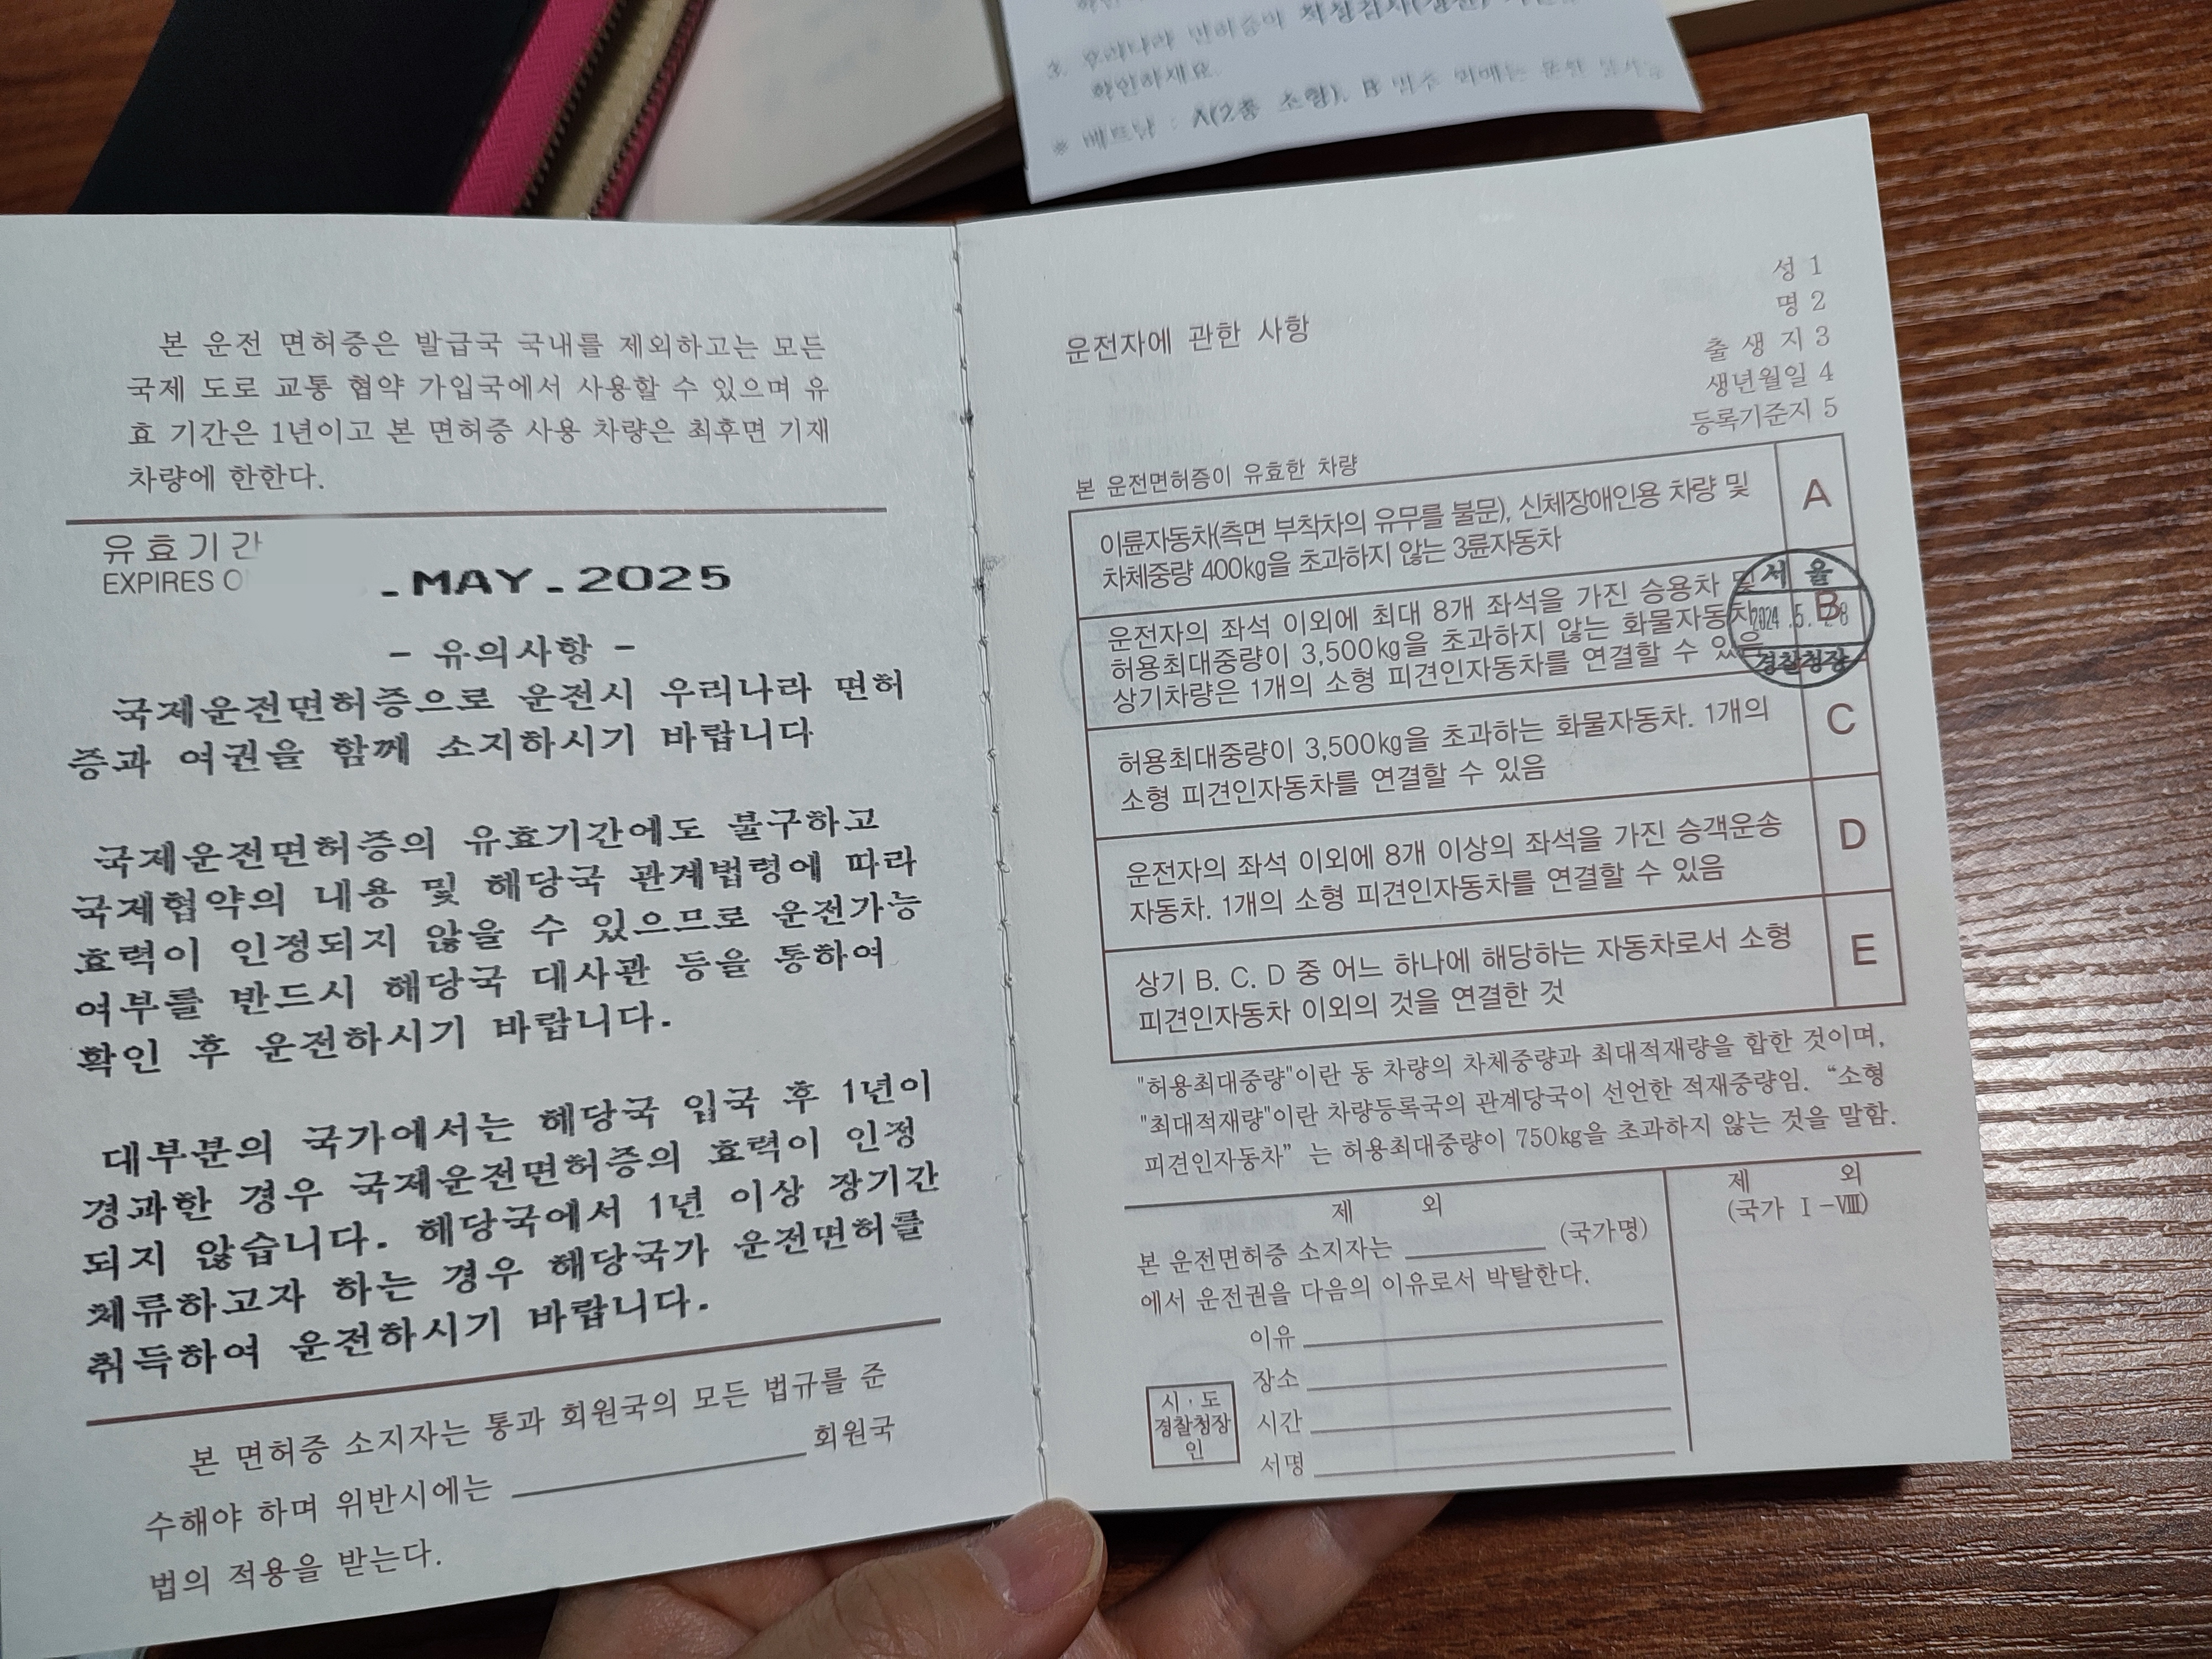 3. 우리나라 면허증이 적성검사(갱신)
확인하세요.
※ 베트남 : A(2종 소형), B
본 운전 면허증은 발급국 국내를 제외하고는 모든
국제 도로 교통 협약 가입국에서 사용할 수 있으며 유
효 기간은 1년이고 본 면허증 사용 차량은 최후면 기재
차량에 한한다.
유효기간
EXPIRES O
-MAY-2025
- 유의사항 -
국제운전면허증으로 운전시 우리나라 면허
증과 여권을 함께 소지하시기 바랍니다
국제운전면허증의 유효기간에도 불구하고
국제협약의 내용 및 해당국 관계법령에 따라
효력이 인정되지 않을 수 있으므로 운전가능
여부를 반드시 해당국 대사관 등을 통하여
확인 후 운전하시기 바랍니다.
대부분의 국가에서는 해당국 입국 후 1년이
경과한 경우 국제운전면허증의 효력이 인정
되지 않습니다. 해당국에서 1년 이상 장기간
체류하고자 하는 경우 해당국가 운전면허를
취득하여 운전하시기 바랍니다.
본 면허증 소지자는 통과 회원국의 모든 법규를 준
수해야 하며 위반시에는 회원국
법의 적용을 받는다.
성 1
명 2
출 생 지 3
생년월일 4
등록기준지 5
운전자에 관한 사항
본 운전면허증이 유효한 차량
이륜자동차(측면 부착차의 유무를 불문), 신체장애인용 차량 및
차체중량 400kg을 초과하지 않는 3륜자동차
A
운전자의 좌석 이외에 최대 8개 좌석을 가진 승용차 및
허용최대중량이 3,500kg을 초과하지 않는 화물자동차
상기차량은 1개의 소형 피견인자동차를 연결할 수 있음
B
서울
2024.5.28
경찰청장
허용최대중량이 3,500kg을 초과하는 화물자동차. 1개의
소형 피견인자동차를 연결할 수 있음
C
운전자의 좌석 이외에 8개 이상의 좌석을 가진 승객운송
자동차. 1개의 소형 피견인자동차를 연결할 수 있음
D
상기 B. C. D 중 어느 하나에 해당하는 자동차로서 소형
피견인자동차 이외의 것을 연결한 것
E
"허용최대중량"이란 동 차량의 차체중량과 최대적재량을 합한 것이며,
"최대적재량"이란 차량등록국의 관계당국이 선언한 적재중량임. “소형
피견인자동차” 는 허용최대중량이 750kg을 초과하지 않는 것을 말함.
제 외
본 운전면허증 소지자는 (국가명)
에서 운전권을 다음의 이유로서 박탈한다.
이유
장소
시간
서명
시·도
경찰청장
인
제 외
(국가 Ⅰ-Ⅷ)